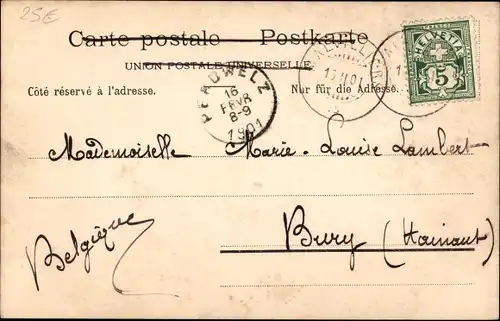 25€
Carte postale Postkarte
UNION POSTALE UNIVERSELLE
Côté réservé à l'adresse. Nur für die Adresse.
PERUWELZ
16
FEVR
8-9
1901
FRANCO
HELVETIA
5
Mademoiselle Marie-Louise Lambert
Bury (Hainaut)
Belgique